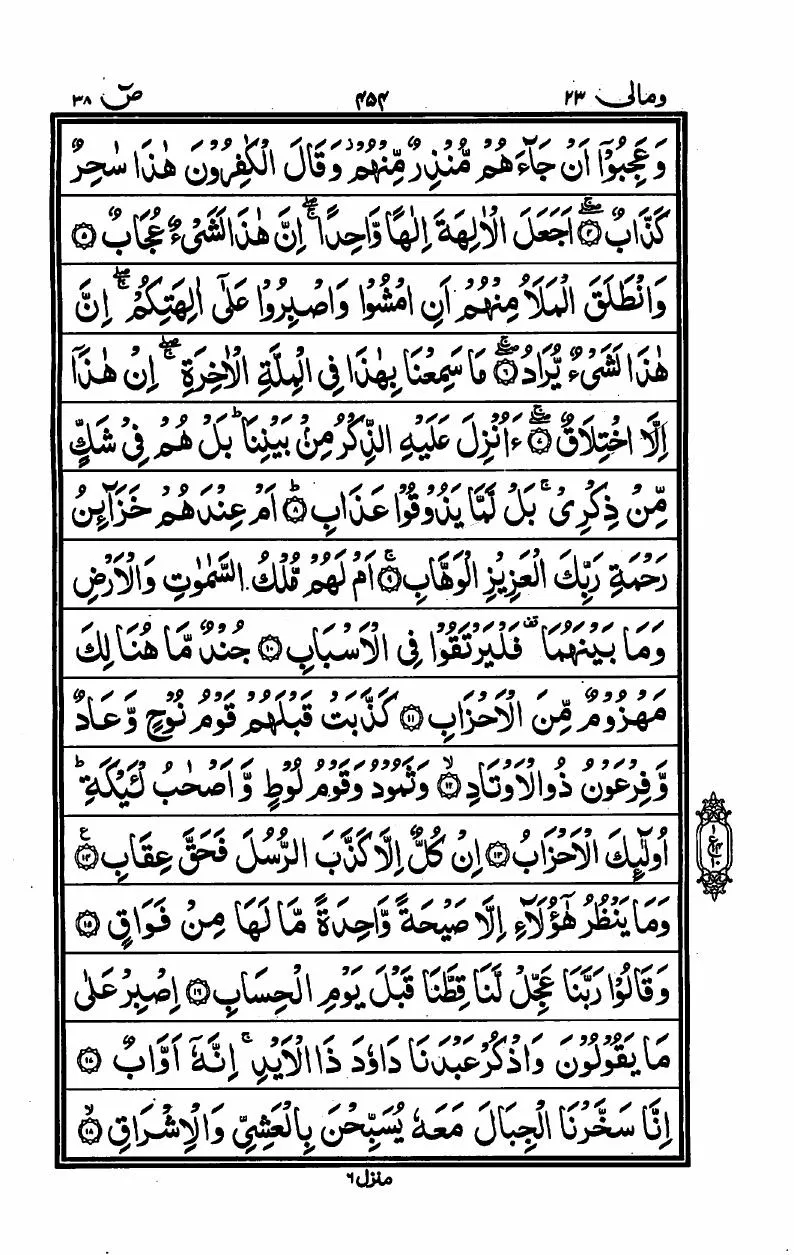 ومالی ۲۳ ۴۵۴ صٓ ۳۸
وَعَجِبُوْۤا اَنْ جَآءَهُمْ مُّنْذِرٌ مِّنْهُمْ ؗ وَقَالَ الْكٰفِرُوْنَ هٰذَا سٰحِرٌ
كَذَّابٌ ۝۴ۖۚ اَجَعَلَ الْاٰلِهَةَ اِلٰهًا وَّاحِدًا ۖۚ اِنَّ هٰذَا لَشَیْءٌ عُجَابٌ ۝۵
وَانْطَلَقَ الْمَلَاُ مِنْهُمْ اَنِ امْشُوْا وَاصْبِرُوْا عَلٰۤی اٰلِهَتِكُمْ ۖۚ اِنَّ
هٰذَا لَشَیْءٌ یُّرَادُ ۝۶ۖۚ مَا سَمِعْنَا بِهٰذَا فِی الْمِلَّةِ الْاٰخِرَةِ ۖۚ اِنْ هٰذَاۤ
اِلَّا اخْتِلَاقٌ ۝۷ۖۚ ءَاُنْزِلَ عَلَیْهِ الذِّكْرُ مِنْۢ بَیْنِنَا ؕ بَلْ هُمْ فِیْ شَكٍّ
مِّنْ ذِكْرِیْ ۚ بَلْ لَّمَّا یَذُوْقُوْا عَذَابِ ۝۸ؕ اَمْ عِنْدَهُمْ خَزَآىِٕنُ
رَحْمَةِ رَبِّكَ الْعَزِیْزِ الْوَهَّابِ ۝۹ۚ اَمْ لَهُمْ مُّلْكُ السَّمٰوٰتِ وَالْاَرْضِ
وَمَا بَیْنَهُمَا ۫ فَلْیَرْتَقُوْا فِی الْاَسْبَابِ ۝۱۰ جُنْدٌ مَّا هُنَالِكَ
مَهْزُوْمٌ مِّنَ الْاَحْزَابِ ۝۱۱ كَذَّبَتْ قَبْلَهُمْ قَوْمُ نُوْحٍ وَّعَادٌ
وَّفِرْعَوْنُ ذُو الْاَوْتَادِ ۝۱۲ۙ وَثَمُوْدُ وَقَوْمُ لُوْطٍ وَّاَصْحٰبُ لْـَٔیْكَةِ ؕ
اُولٰٓىِٕكَ الْاَحْزَابُ ۝۱۳ اِنْ كُلٌّ اِلَّا كَذَّبَ الرُّسُلَ فَحَقَّ عِقَابِ ۝۱۴ع
وَمَا یَنْظُرُ هٰۤؤُلَآءِ اِلَّا صَیْحَةً وَّاحِدَةً مَّا لَهَا مِنْ فَوَاقٍ ۝۱۵
وَقَالُوْا رَبَّنَا عَجِّلْ لَّنَا قِطَّنَا قَبْلَ یَوْمِ الْحِسَابِ ۝۱۶ اِصْبِرْ عَلٰی
مَا یَقُوْلُوْنَ وَاذْكُرْ عَبْدَنَا دَاوٗدَ ذَا الْاَیْدِ ۚ اِنَّهٗۤ اَوَّابٌ ۝۱۷
اِنَّا سَخَّرْنَا الْجِبَالَ مَعَهٗ یُسَبِّحْنَ بِالْعَشِیِّ وَالْاِشْرَاقِ ۝۱۸ۙ
منزل ۶